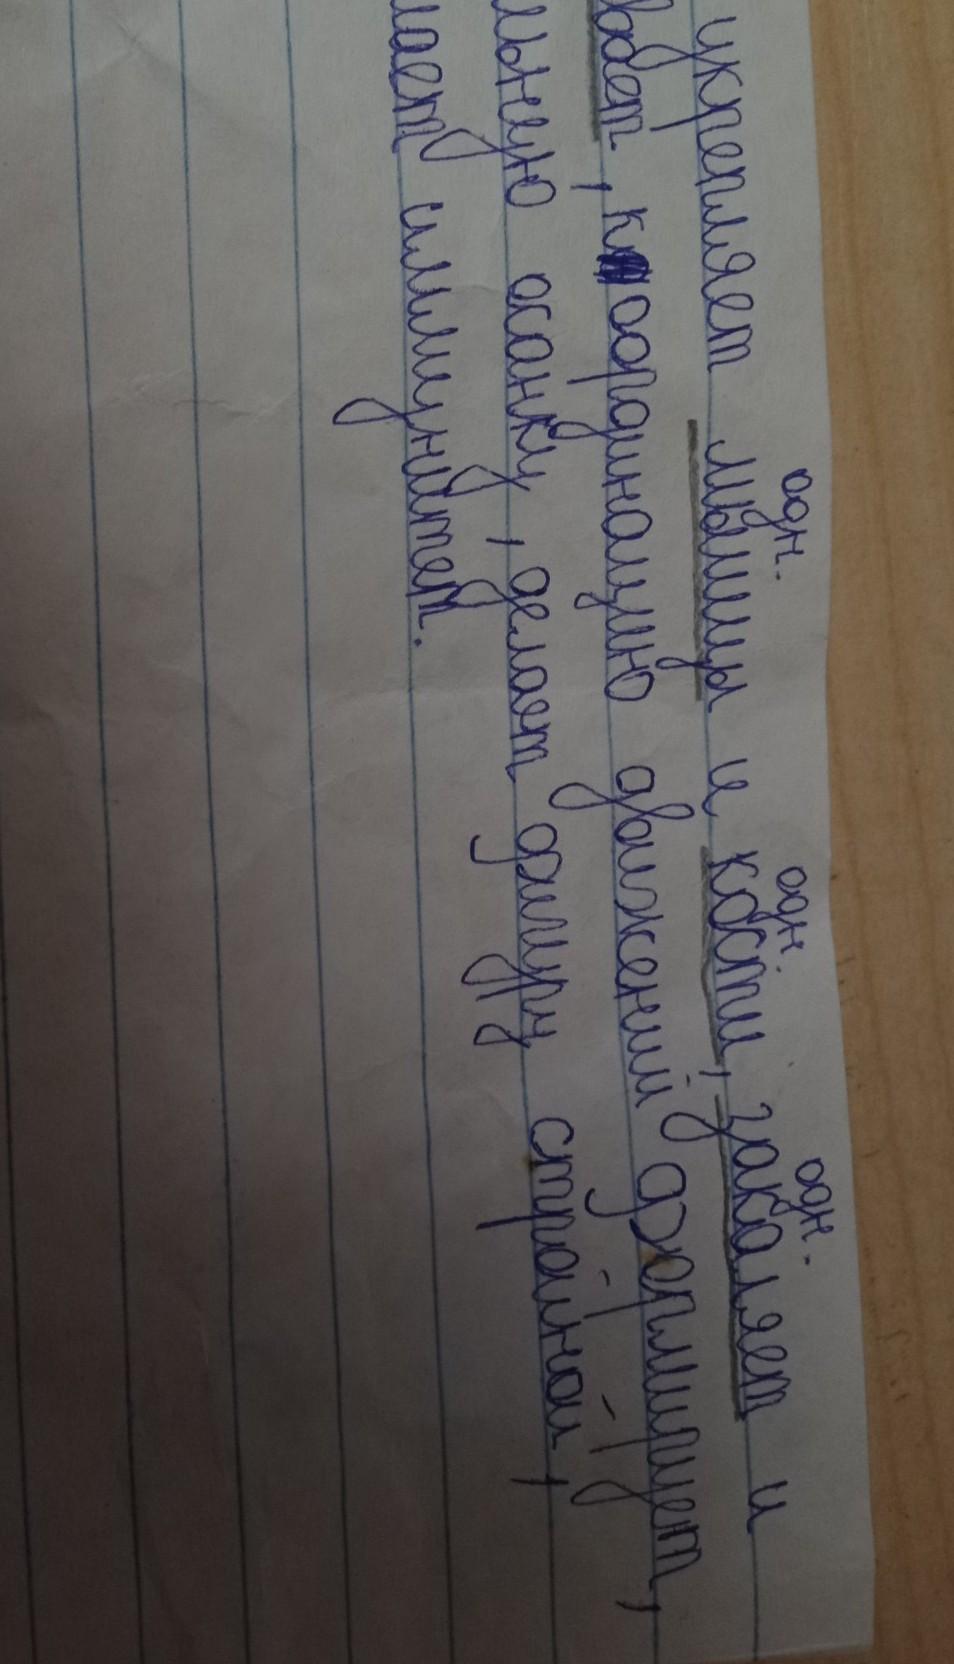 одн. одн. одн.
укрепляет мышцы и кости, закаляет и
вает, координацию движений формирует,
льную осанку, делает фигуру стройной,
лает иммунитет.